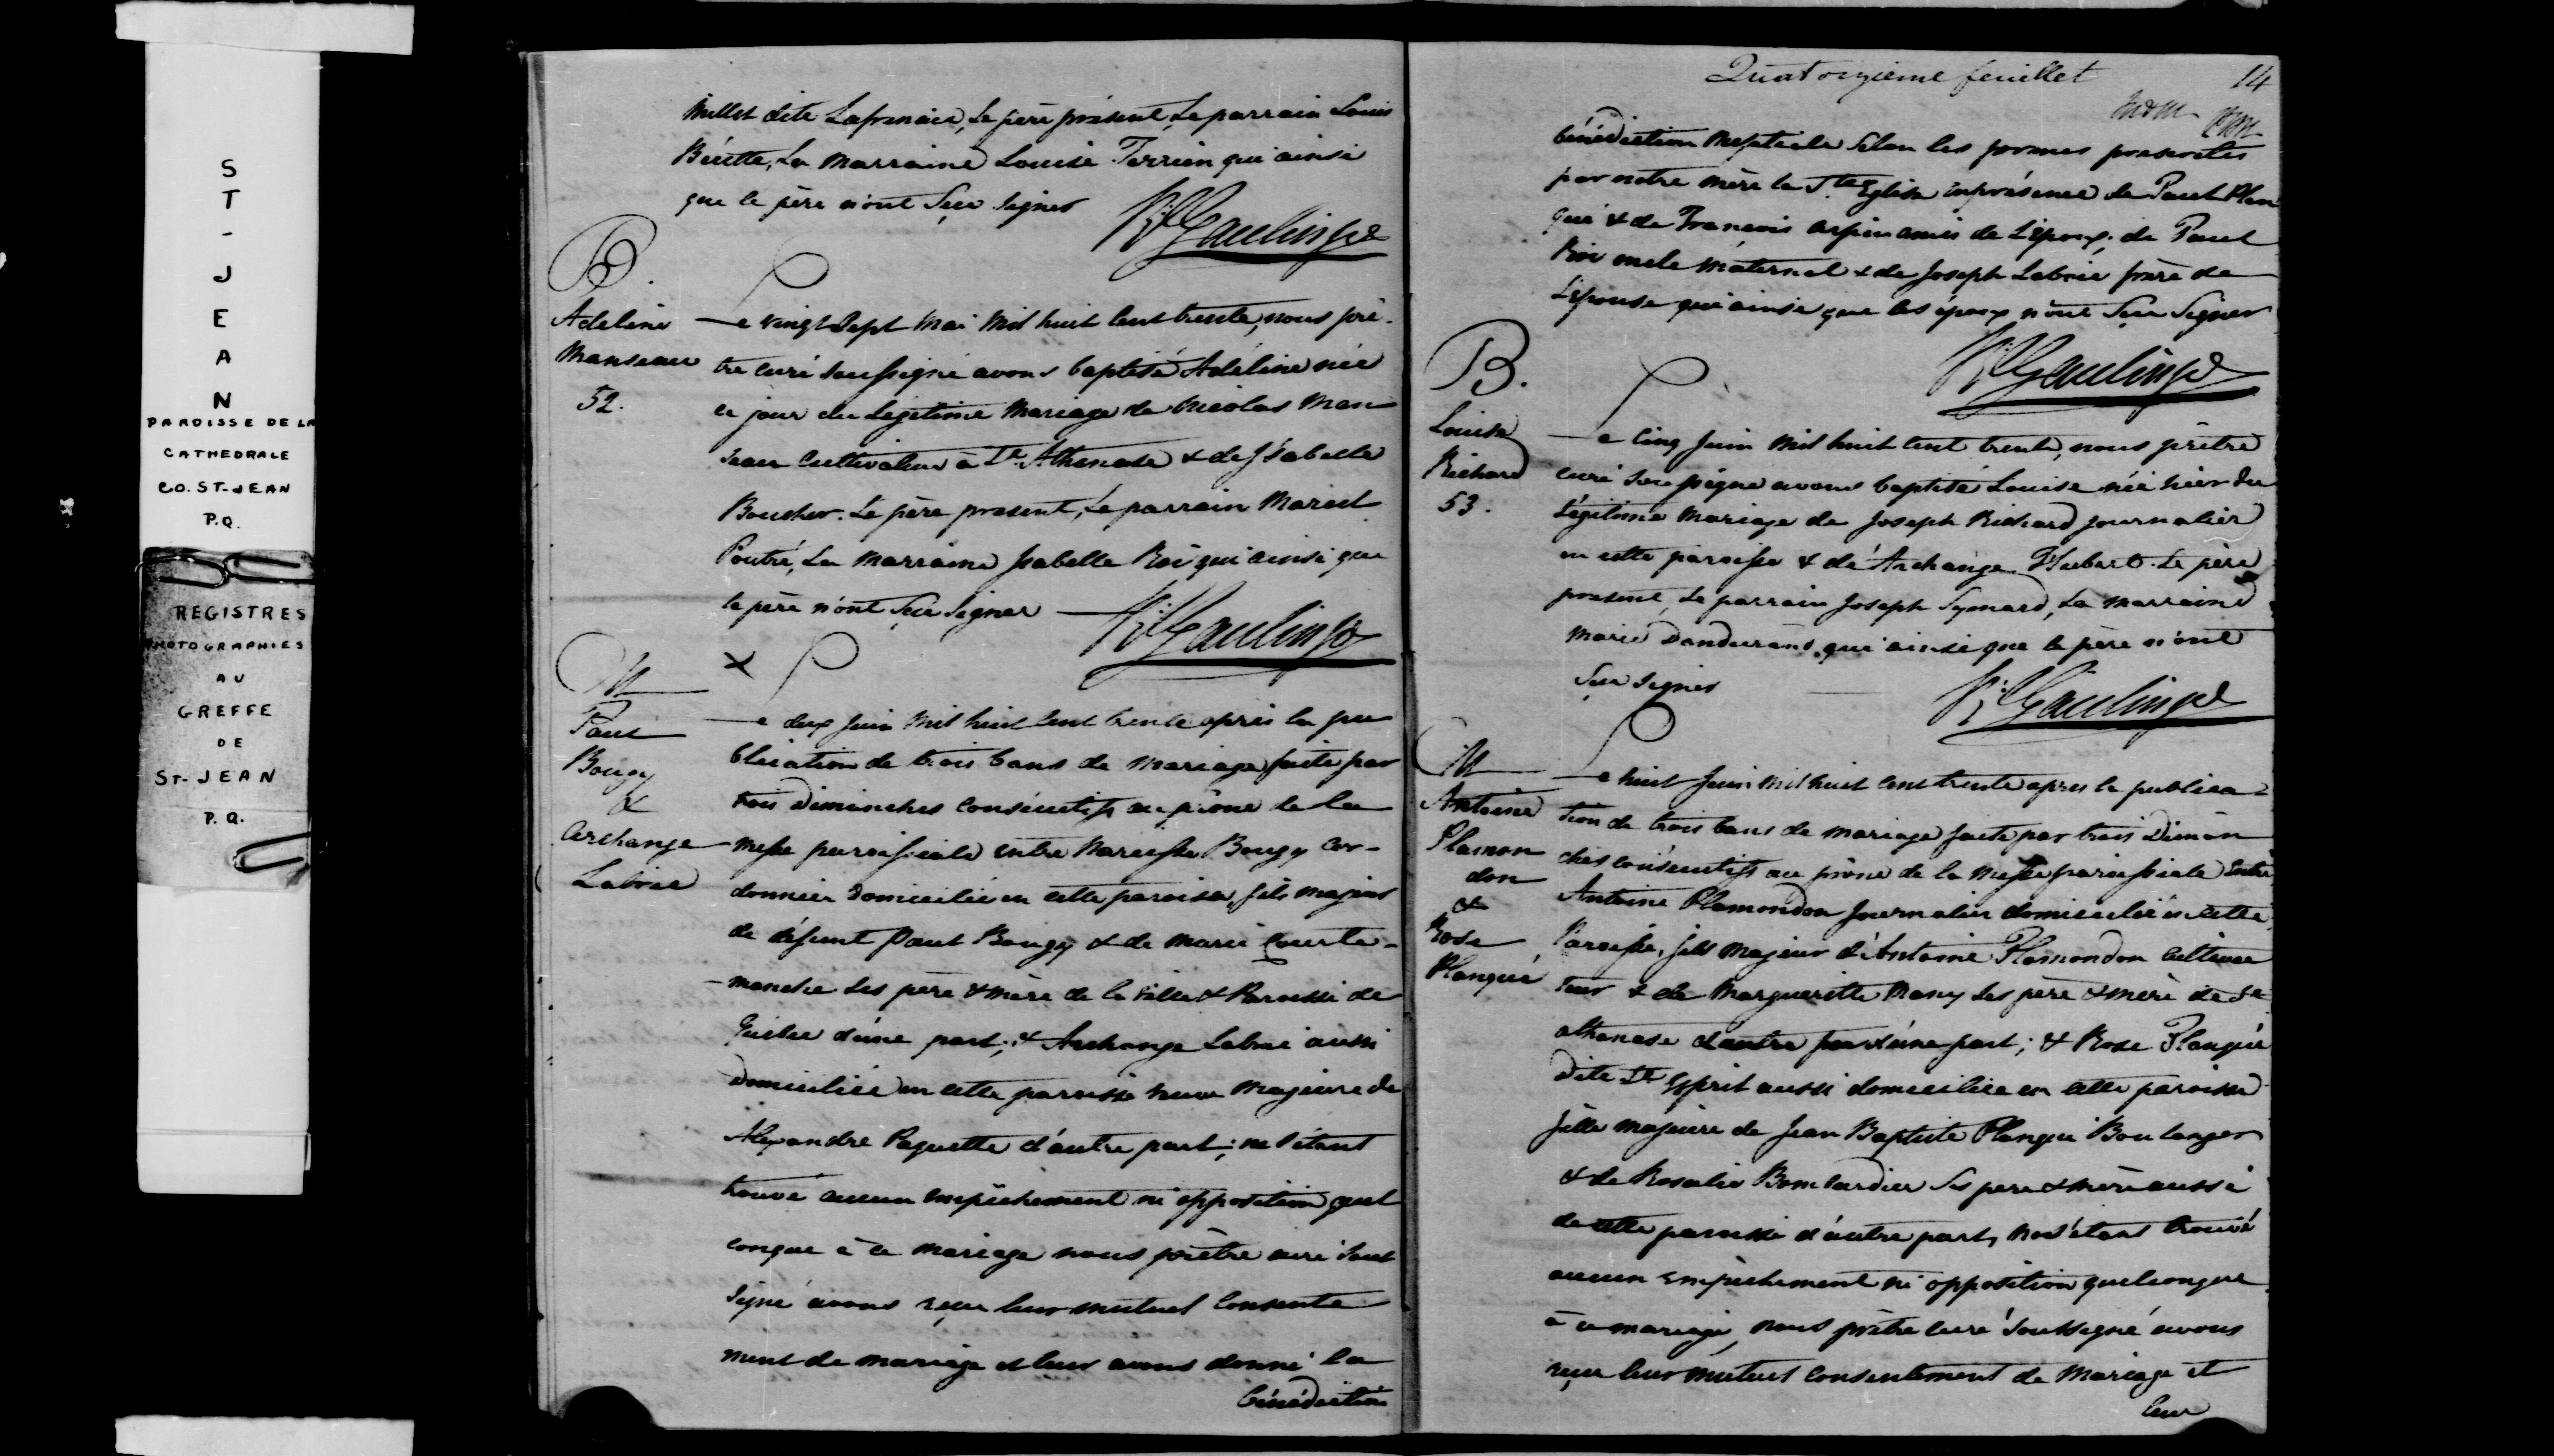 S
T
-
J
E
A
N
PAROISSE DE LA
CATHEDRALE
CO. ST-JEAN
P.Q.
REGISTRES
PHOTOGRAPHIES
AU
GREFFE
DE
ST-JEAN
P.Q.
Millet dite Lafrenaie, Le père présent, Le parrain Louis
La Marraine Louise Terrien qui ainsi
que le père n'ont Sçu Signer
B.
Adeline
Manseau
52.
Le vingt Sept Mai Mil huit Cent trente, nous prê-
tre curé Soussigné avons baptisé Adéline née
ce jour du Légitime Mariage de Nicolas Man
seau Cultivateur à St. Athanase & de Isabelle
Boucher. Le père présent, Le parrain Marcel
Poutré, La Marraine Isabelle Roi qui ainsi que
le père n'ont Sçu Signer
M
Paul
Bougy
&
Archange
Labrie
x
Le deux Juin Mil huit Cent trente après la pu
blication de trois bans de Mariage faite par
trois Dimanches consécutifs au prône de la
Messe paroissiale entre Narcisse Bougy Cor-
donnier domicilié en cette paroisse, fils majeur
de défunt Paul Bougy & de Marie Courte-
-manche Ses père & mère de la Ville & Paroisse de
Québec d'une part; & Archange Labrie aussi
domiciliée en cette paroisse veuve Majeure de
Alexandre Paquette d'autre part; ne S'étant
trouvé aucun empêchement ni opposition quel
conque à ce Mariage nous prêtre curé Sous
Signé avons reçu leur mutuel Consente
ment de Mariage et leur avons donné la
bénédiction
Quatorzième feuillet
14
bénédiction Nuptiale Selon les formes prescrites
par notre Mère la Ste Eglise en présence de Paul Plan
qué & de François amis de L'époux; de Paul
Roi oncle Maternel & de Joseph Labrie frère de
L'épouse qui ainsi que les époux n'ont Sçu Signer
B.
Louise
Richard
53.
Le Cinq Juin Mil huit Cent trente, nous prêtre
curé Soussigné avons baptisé Louise née hier du
Légitime Mariage de Joseph Richard Journalier
en cette paroisse & de Archange Hubert. Le père
présent, Le parrain Joseph Symard, La Marraine
Marie Dandurand qui ainsi que le père n'ont
Sçu Signer
M
Antoine
Plamon
don
&
Rose
Planqué
Le huit Juin Mil huit Cent trente après la publica-
tion de trois bans de Mariage faite par trois Diman
ches consécutifs au prône de la Messe paroissiale Entre
Antoine Plamondon Journalier domicilié en cette
Paroisse, fils Majeur d'Antoine Plamondon Cultiva
teur & de Marguerite Many Ses père & mère de St
Athanase d'autre par d'une part; & Rose Planqué
dite St. Esprit aussi domiciliée en cette paroisse
fille Majeure de Jean Baptiste Planqué Boulanger
& de Rosalie Bombardier Ses père & mère aussi
de cette paroisse d'autre part, ne S'étant trouvé
aucun empêchement ni opposition quelconque
à ce mariage, nous prêtre Curé Soussigné avons
reçu leur Mutuel Consentement de Mariage et
leur